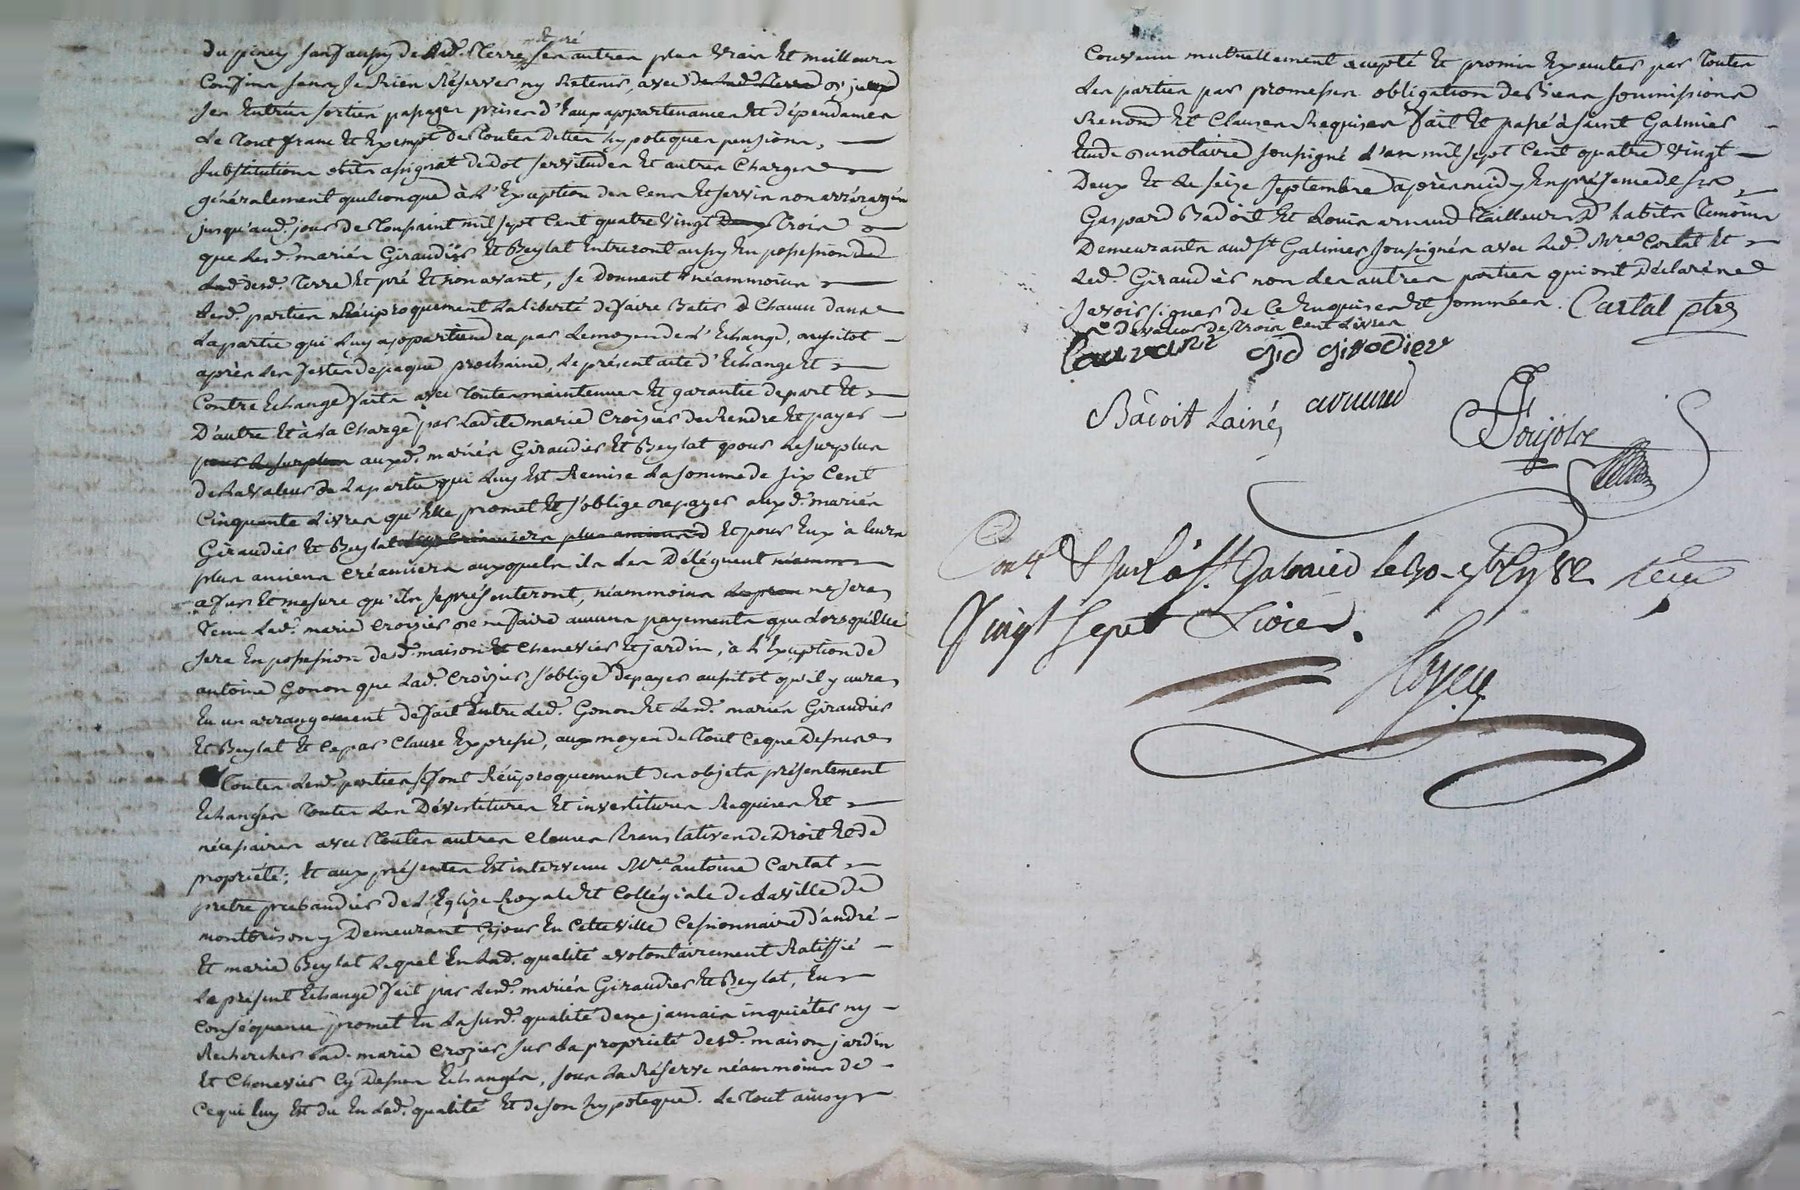 du piney sauf aussy de lad. terre et pré ses autres plus vrais et meilleurs
Confins sans se Rien Réserver ny Retenir, avec de lad. terre
ses Entrées sorties passages prises d'Eaux appartenances Et dépendances
Le Tout franc Et Exempt de Toutes dettes hypoteques pensions,
substitutions obits assignat de dot servitudes Et autres Charges
généralement quelconque à L'Exception des Cens Et servis non arréragés
jusqu'aud. jour de Toussaint mil sept Cent quatre vingt Deux Trois
que Lesd. mariés Giraudier Et Beylat Entreront aussy En possession de
Lad. desd. Terre Et pré Et non avant, se donnant néammoins
Lesd. parties Réciproquement La liberté de faire Batir Chacun dans
La partie qui Luy appartiendra par Le moyen de L'Echange, aussitot
après Les festes de paque prochaine, Le présent acte d'Echange Et
Contre Echange fait avec Toutes maintenues Et garantie de part Et
D'autre Et à La Charge par Ladite marie Croizier de Rendre Et payer
pour Le surplus auxd. mariés Giraudier Et Beylat pour Le surplus
de La valeur de La partie qui Luy Est Remise La somme de six Cent
Cinquante Livres qu'Elle promet Et s'oblige de payer auxd. mariés
Giraudier Et Beylat Et pour Eux à leurs
plus anciens Créanciers auxquels ils Les Délèguent
a fur Et mesure qu'ils se présenteront, néammoins ne sera
Tenu Lad. marie Croizier de en faire aucuns payements que Lorsqu'Elle
sera En possession desd. maison Et Chenevier Et jardin, à L'Exception de
antoine Gonon que Lad. Croizier s'oblige de payer aussitot qu'il y aura
Eu un arrangement de fait Entre Led. Gonon Et Lesd. mariés Giraudier
Et Beylat Et Ce par Clause Expresse, au moyen de Tout Ce que Dessus
Toutes Lesd. parties se font Réciproquement des objets présentement
Echangés Toutes Les Dévestitures Et investitures Requises Et
nécessaires avec Toutes autres Clauses Translatives de Droit Et de
propriété; Et aux présentes Est intervenu Mre. antoine Cartal
pretre prebandier de L'Eglize Royale Et Collégiale de La ville de
montbrison y Demeurant Cejour En Cette ville Cessionnaire d'andré
Et marie Beylat Lequel En Lad. qualité a volontairement Ratiffié
Le présent Echange fait par Lesd. mariés Giraudier Et Beylat, En
Conséquence promet En La susd. qualité de ne jamais inquiéter ny
Rechercher Lad. marie Crozier sur La propriété desd. maison jardin
Et Chenevier Cy Dessus Echangés, sous La Réserve néammoins de
Ce qui luy Est du En Lad. qualité Et de son hypoteque. Le Tout ainsy
Convenu mutuellement accepté Et promis Exécuter par Toutes
Les parties par promesses obligation de Biens soumissions
Renond Et Clauses Requises fait Et passé à saint Galmier
Etude du notaire soussigné L'an mil sept Cent quatre vingt
Deux Et Le seize septembre après midy En présence de sieur
Gaspard Badoit Et Louis arnaud Tailleur D'habits Temoins
Demeurants aud. St. Galmier soussignés avec Led. Mre. Cartal Et
Led. Giraudier non Les autres parties qui ont Déclaré ne
savoir signer de Ce Enquises Et sommées. Cartal ptre
de valeur de Trois Cent Livres
gid girodier
Badoit Lainé arnaud
Pouyolx
Con.lé & Insi.né à St. Galmier le 30 7bre 1782 Reçu
Vingt Sept Livres.